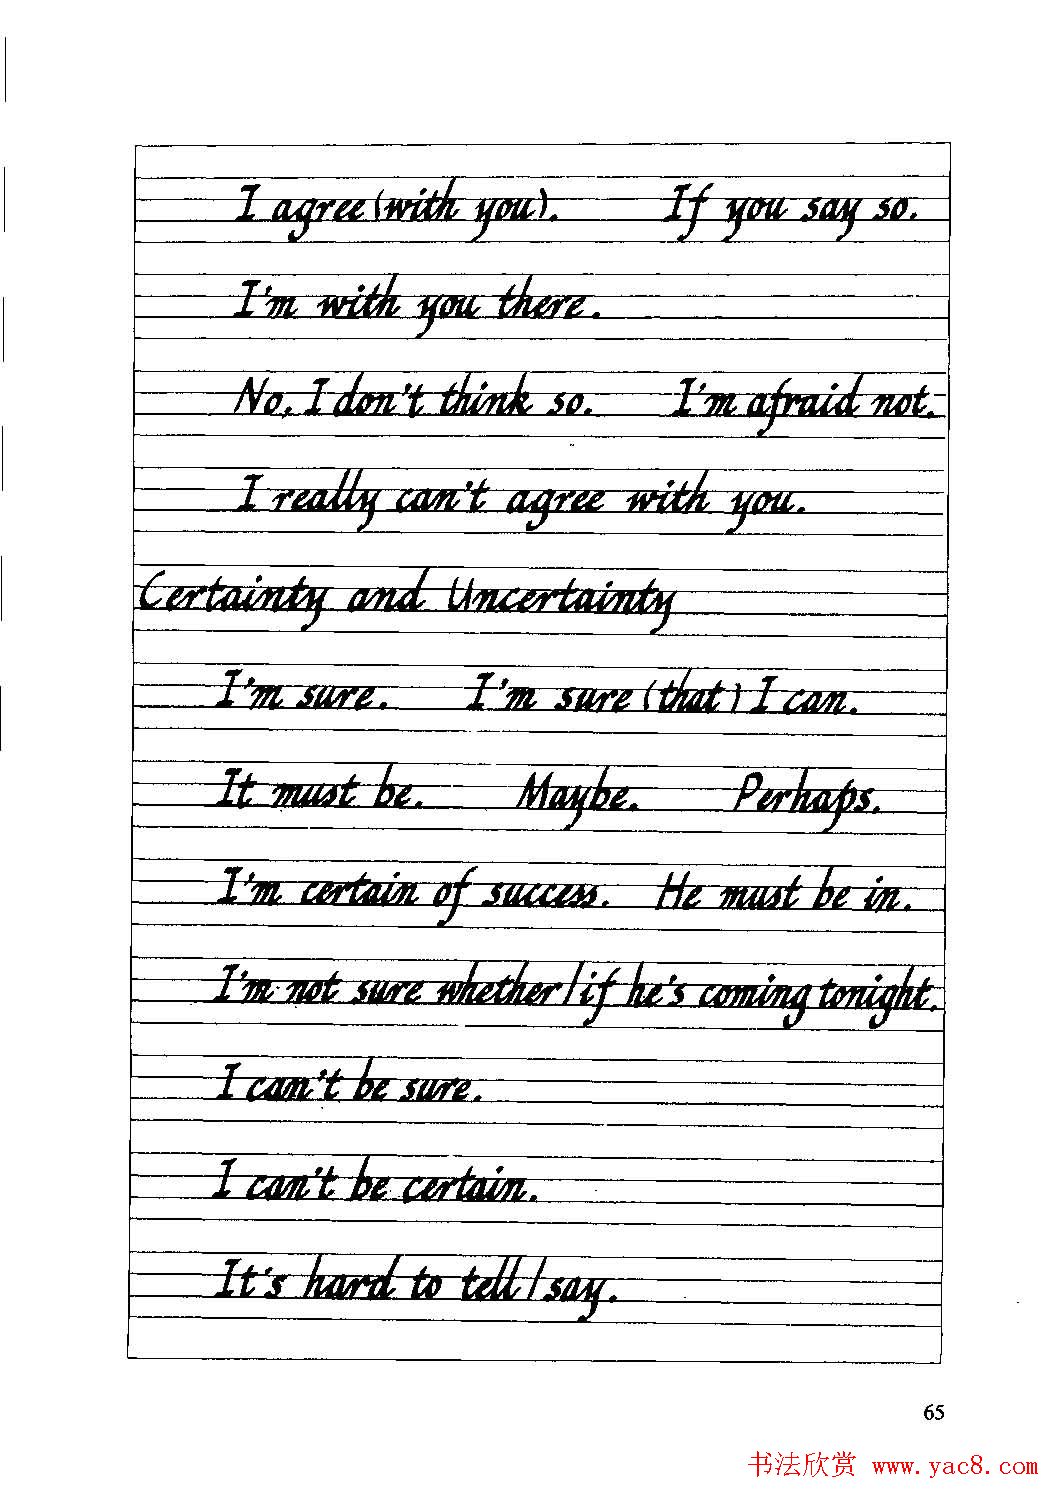 I agree (with you). If you say so.
I'm with you there.
No, I don't think so. I'm afraid not.
I really can't agree with you.
Certainty and Uncertainty
I'm sure. I'm sure (that) I can.
It must be. Maybe. Perhaps.
I'm certain of success. He must be in.
I'm not sure whether/if he's coming tonight.
I can't be sure.
I can't be certain.
It's hard to tell/say.
65
书法欣赏 www.yac8.com